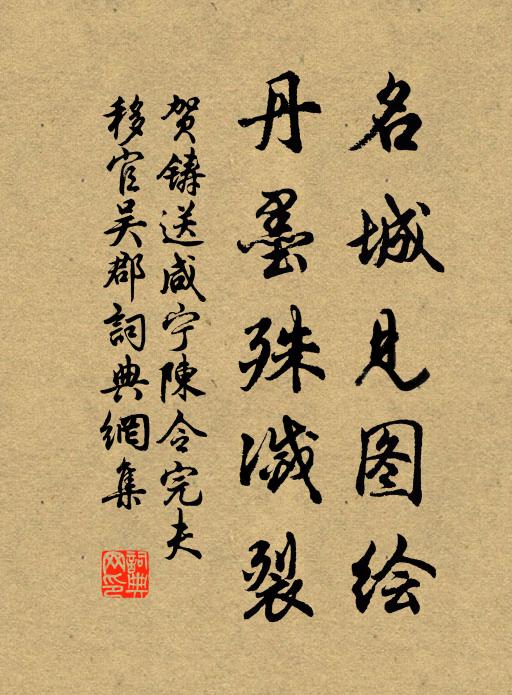 名城见图绘
丹墨殊灭裂
贺铸送咸宁陳令完夫
移官吴郡詞典網集
詞典网印